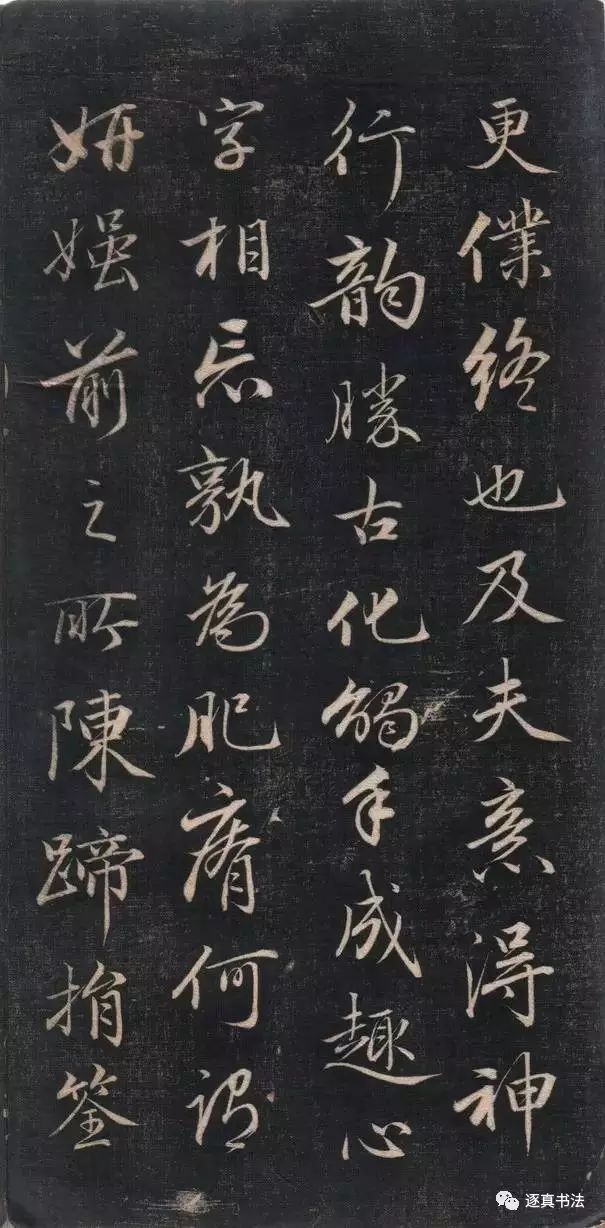 更僕終也及夫意得神
行韵勝古化觸手成趣心
字相忘孰為肥瘠何謂
妍媸前之所陳蹄捐筌
逐真书法